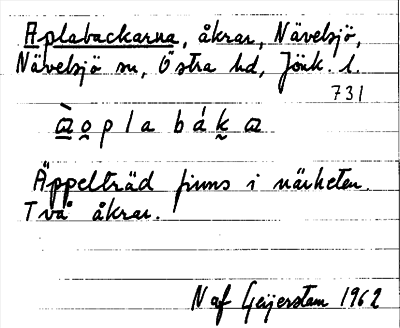 Aplabackarna, åkrar, Nävelsjö,
Nävelsjö sn, Östra hd, Jönk. l.
731
a o p l a b á k a
Äppelträd finns i närheten.
Två åkrar.
N af Geijerstam 1962